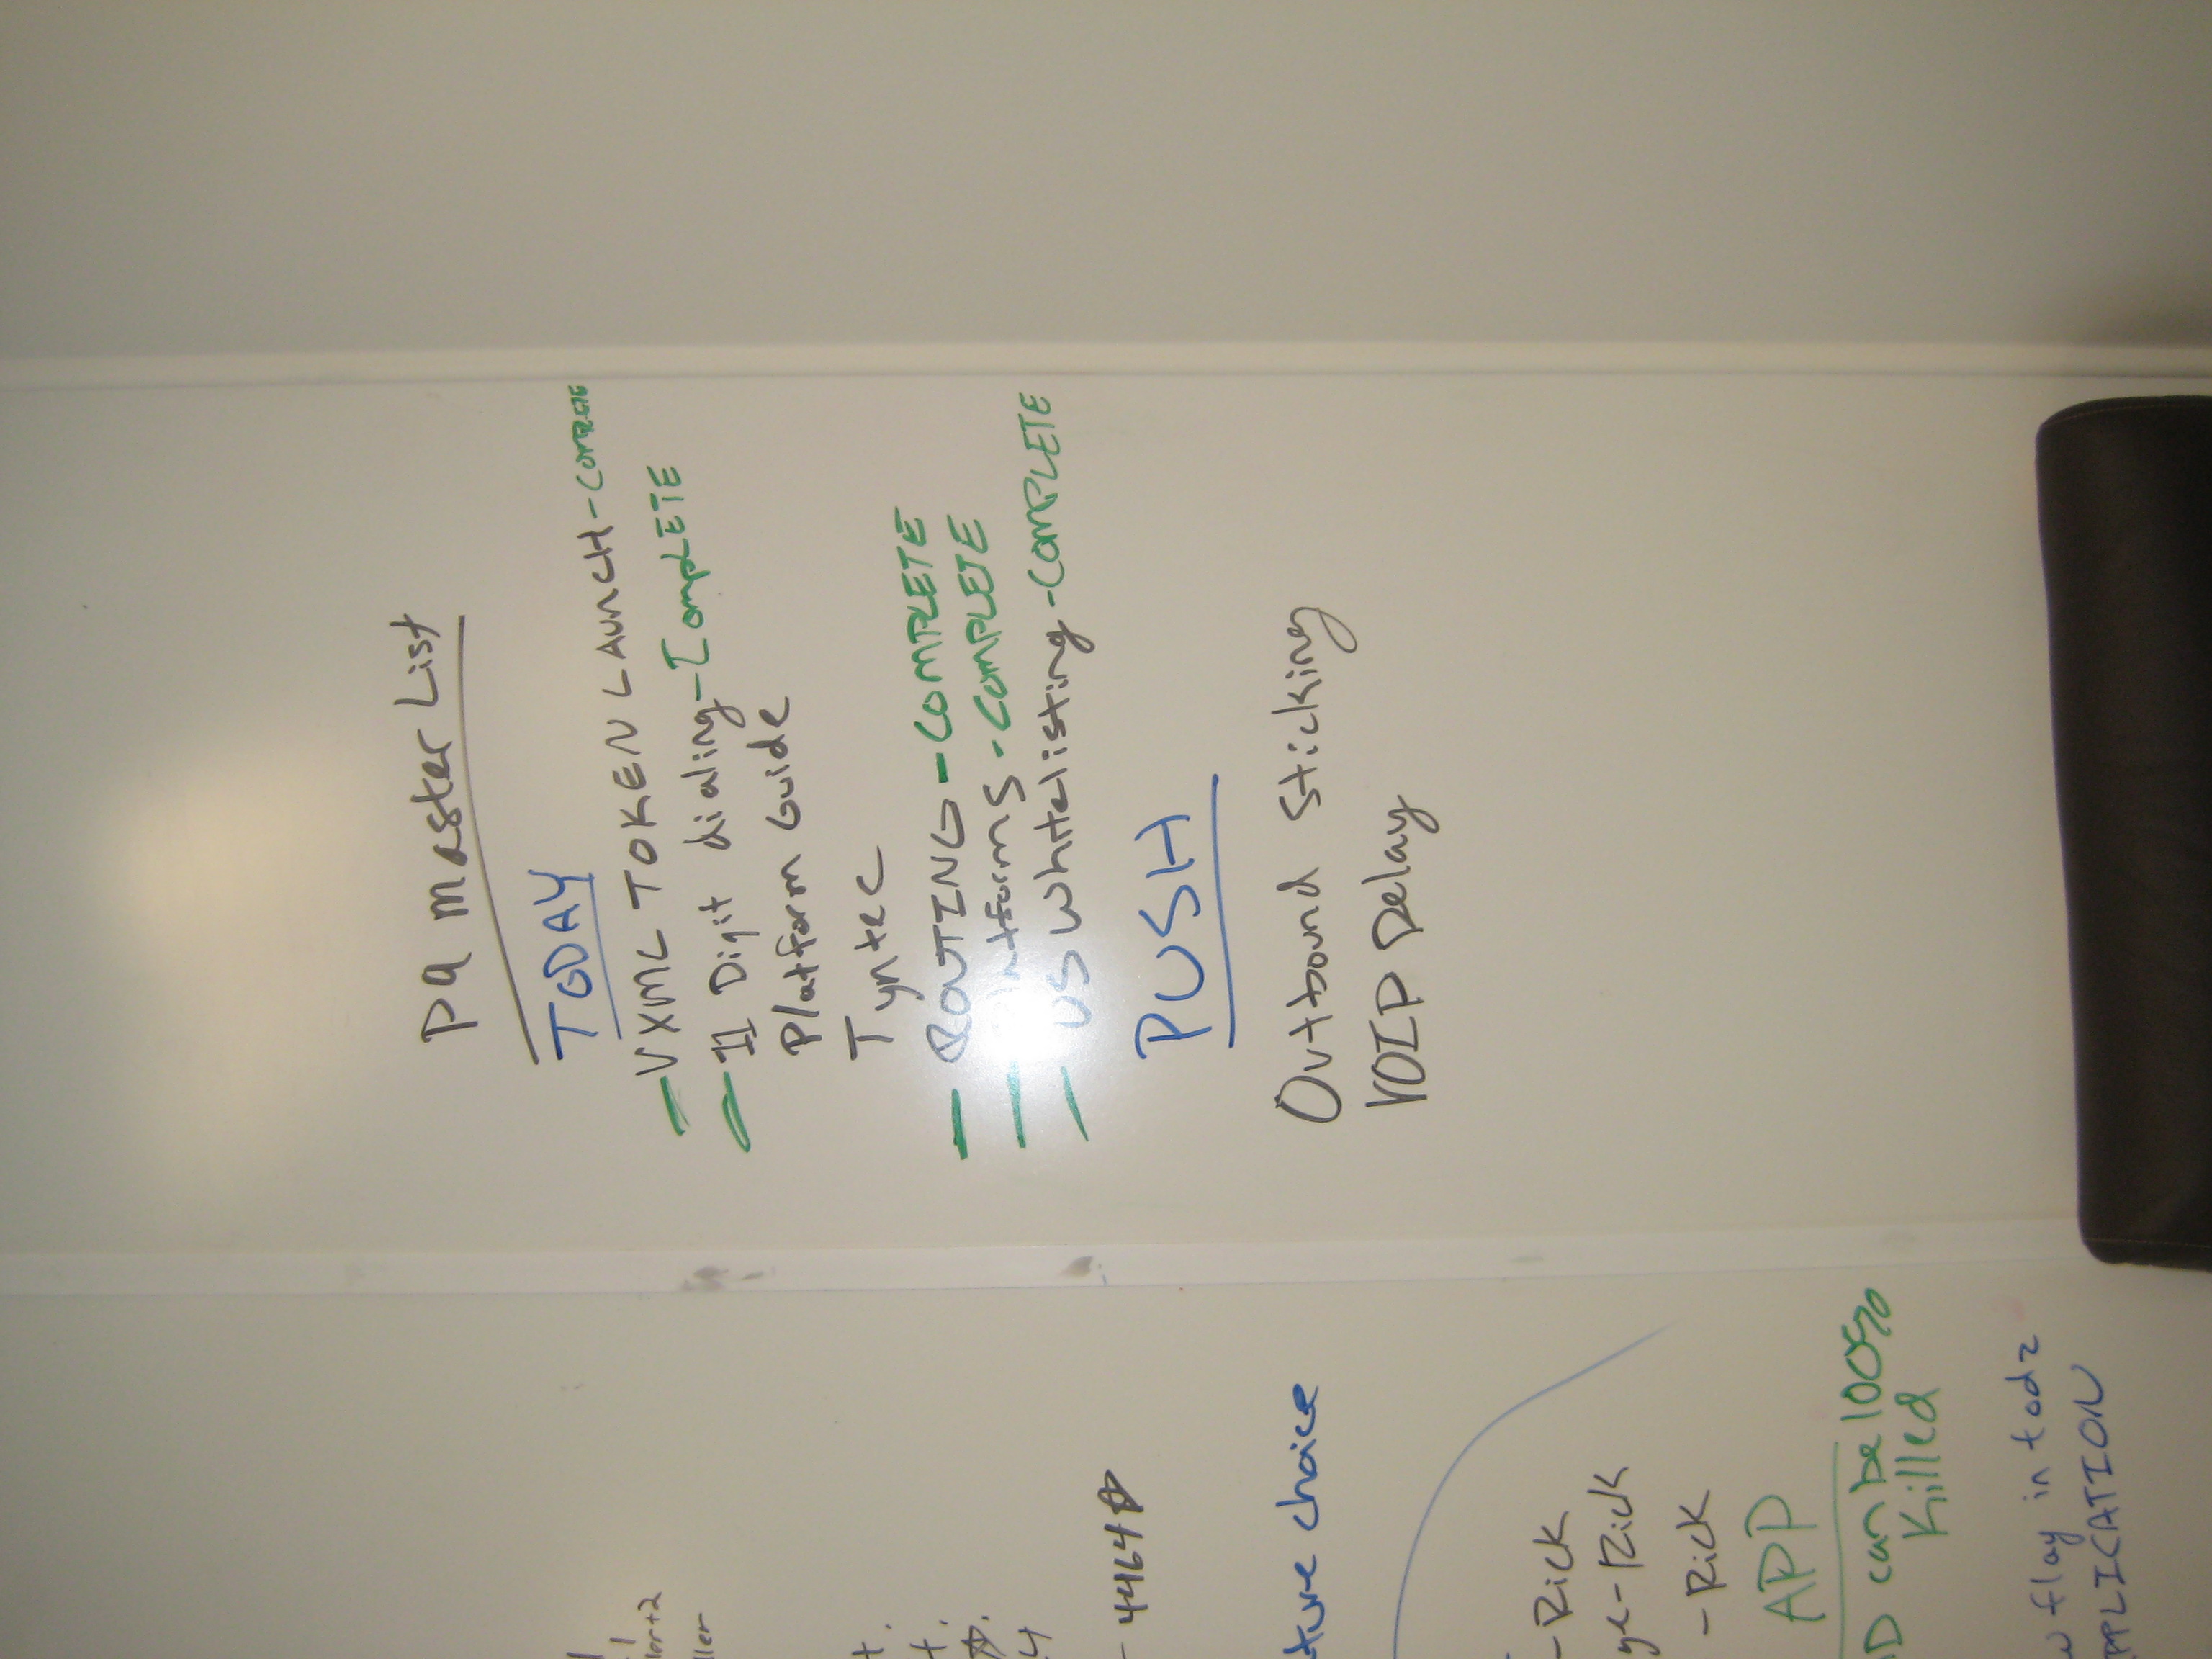 PQ master List
TODAY
- VXML TOKEN LAUNCH - COMPLETE
- II Digit dialing - IComplETE
Platform Guide
Tyntec
- ROUTING - COMPLETE
- Platforms - COMPLETE
- US Whitelisting - COMPLETE
PUSH
Outbound Sticking
VOIP Delay
- 4464
choice
- Rick
- Rick
- Rick
APP
can be 100%
Killed
flay in